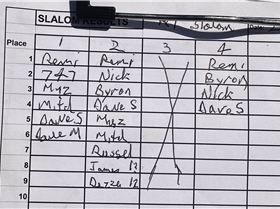 SLALOM RESULTS Slalom
Place 1 2 3 4
1 Remi Remi Remi
2 747 Nick Byron
3 Myz Byron Nick
4 Mitd Dave S Dave S
5 Dave S Myz
6 Dave M Mitd
7 Russel
8 James 12
9
10